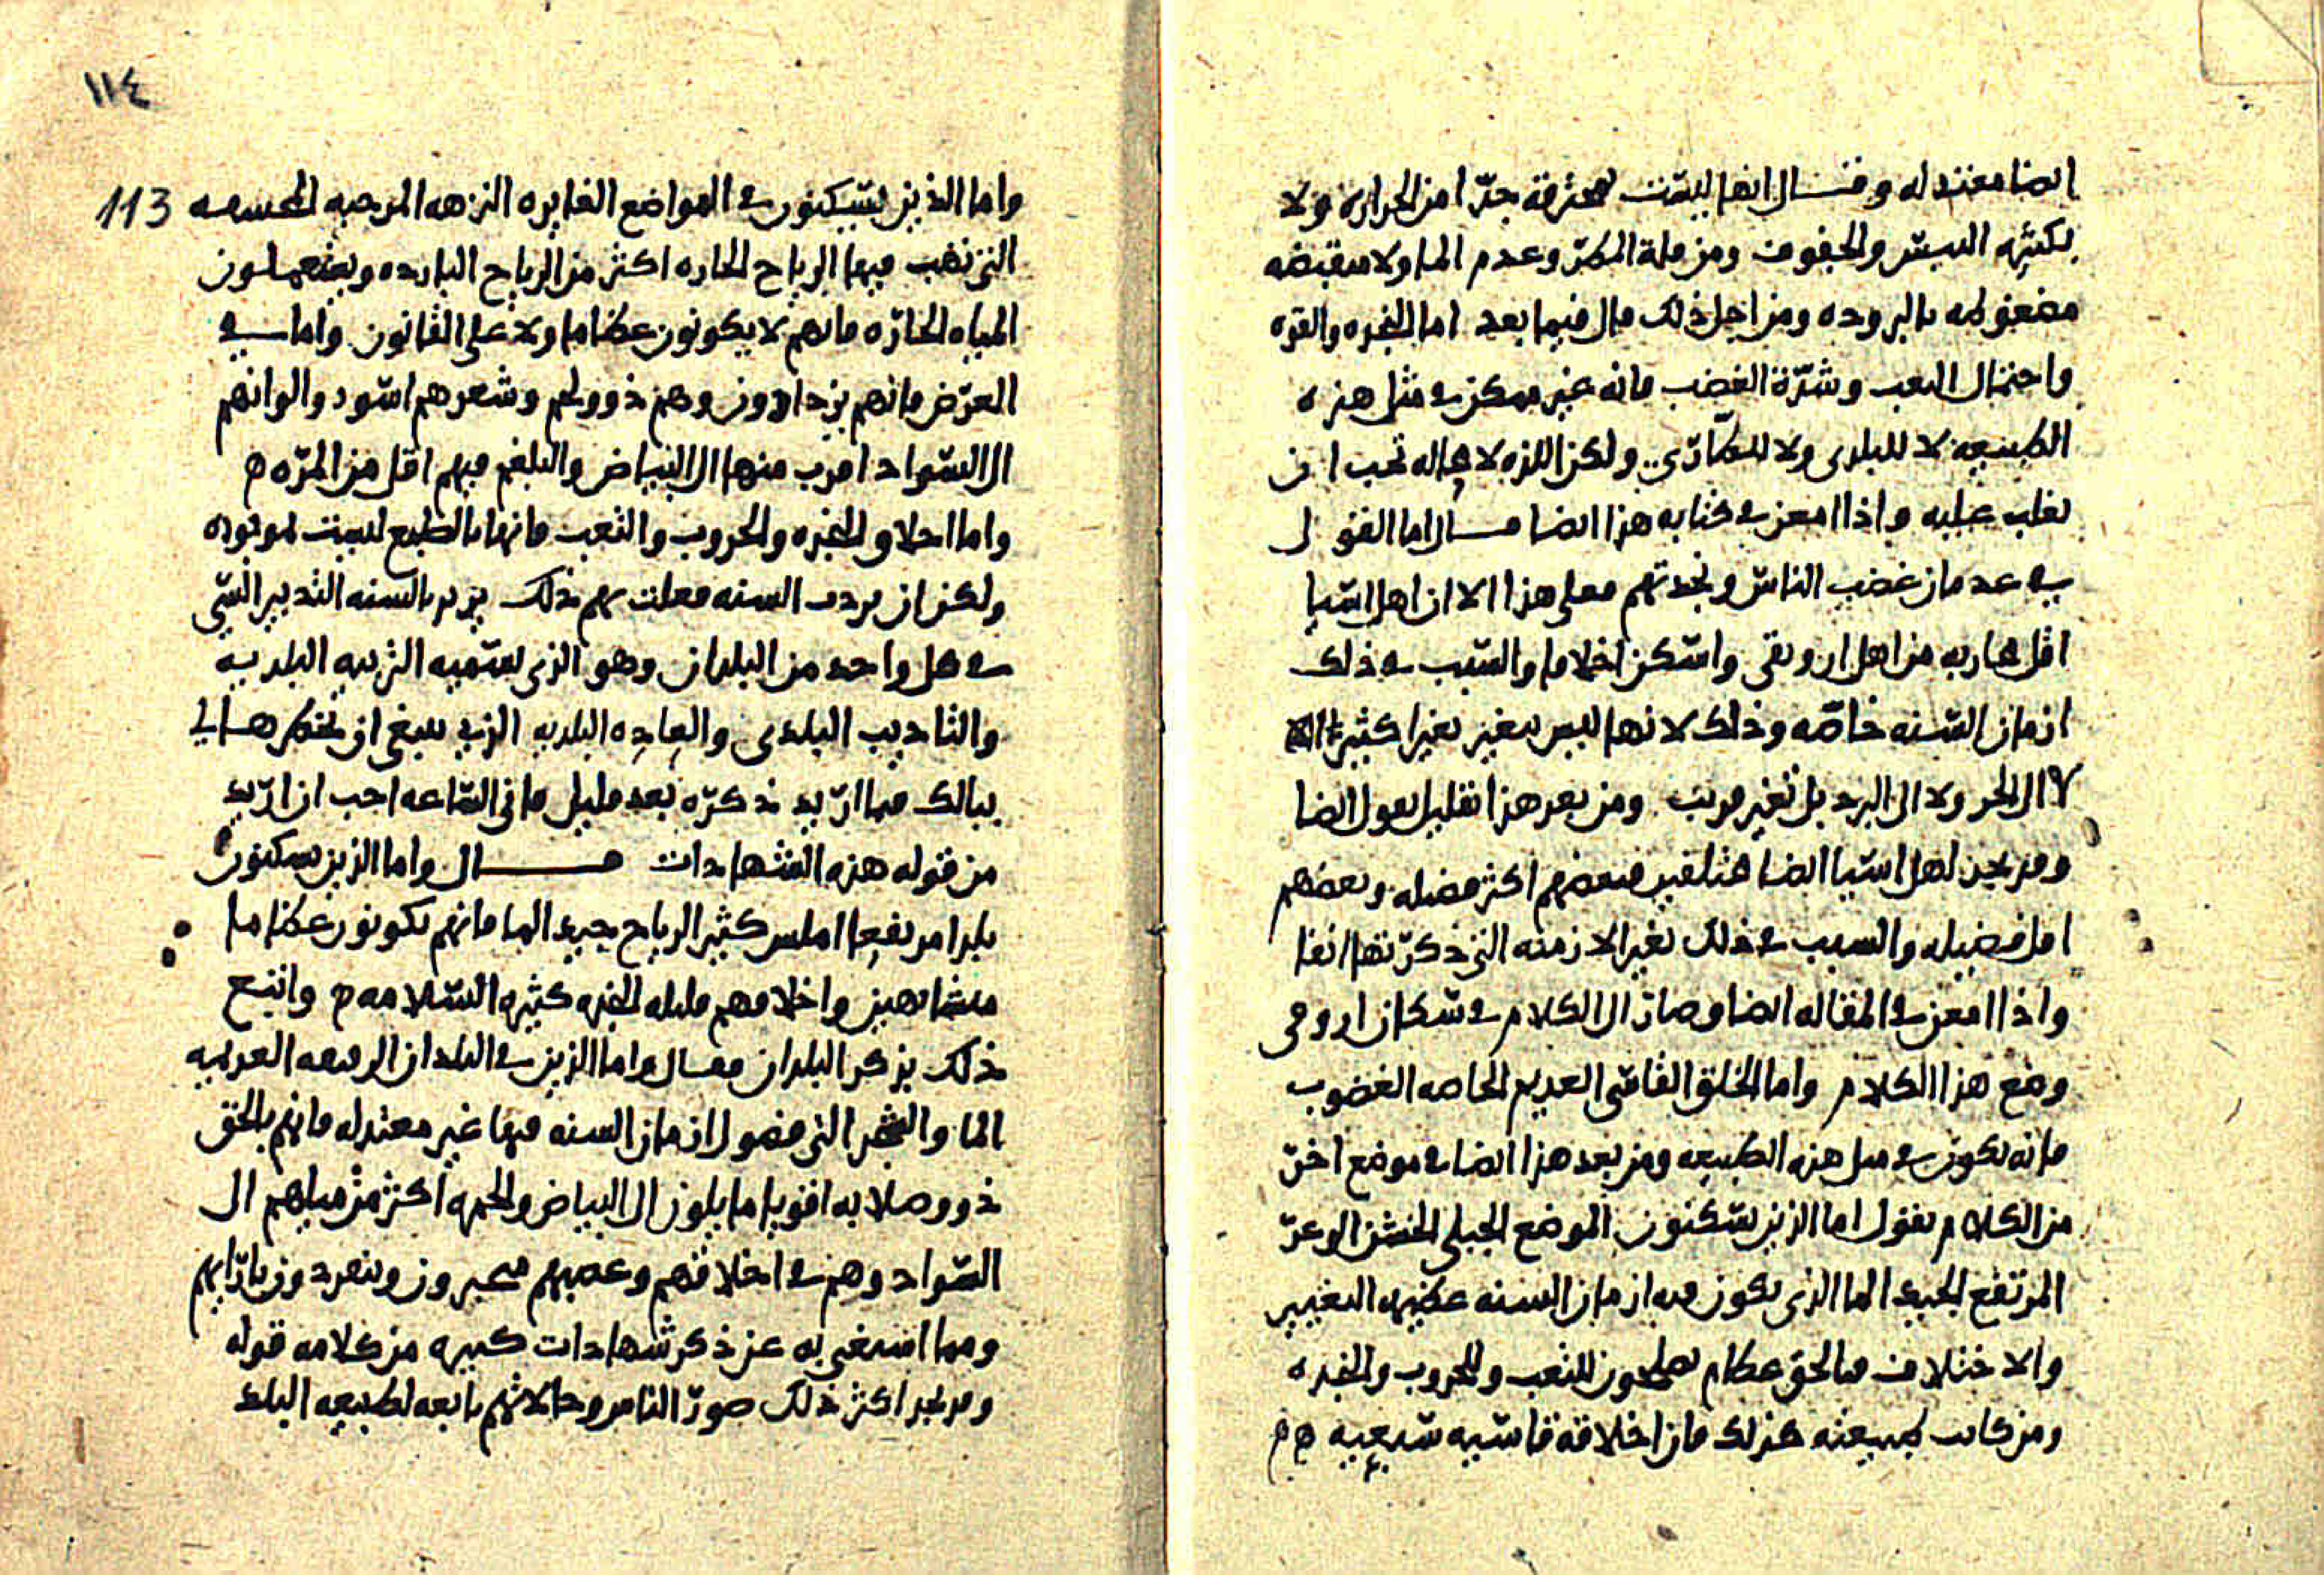 ايضا معتدله وقال انها ليست محترقة جدّا من الحراره ولا
بكثره اليبس والجفوف ومن قلة المطر وعدم الما ولا منقبضه
مضغوطه بالبروده ومن اجل ذلك قال فيما بعد اما النجده والقوه
واحتمال التعب وشدّة الغضب فانه غير ممكن في مثل هذه
الطبيعه لا للبلدى ولا للطارى ولكن اللذه لا محاله تحب ان
تغلب عليه واذا امعن في كتابه هذا ايضا قال اما القول
في عدمان غضب الناس ونجدتهم فعلى هذا الا ان اهل اسيا
اقل محاربه من اهل اروبقى واسكن اخلاقا والسبب في ذلك
ازمان السنه خاصّه وذلك لانها ليس تتغير تغيرا كثيرا
لا الى الحر ولا الى البرد بل تغير قريب ومن بعد هذا بقليل يقول ايضا
وقد نجد اهل اسيا ايضا مختلفين فبعضهم اكثر فضيله وبعضهم
اقل فضيله والسبب في ذلك تغير الازمنه التي ذكرتها انفا
واذا امعن في المقاله ايضا وصار الى الكلام في سكان اروفى
وضع هذا الكلام واما الخلق القاسى العديم الخاصه الغضوب
فانه يكون في مثل هذه الطبيعه ومن بعد هذا ايضا في موضع اخر
من الكلام يقول اما الذين يسكنون الموضع الجبلى الخشن الوعر
المرتفع الجيد الما الذى يكون فيه ازمان السنه عظيمه التغيير
والاختلاف فبالحق عظام يصلحون للتعب وللحروب والنجده
ومن كانت طبيعته كذلك فان اخلاقه قاسيه سبعيه
١١٤
واما الذين يسكنون في المواضع الغايره النزهه المرجيه
113
التي تهب فيها الرياح الحاره اكثر من الرياح البارده ويستعملون
المياه الحارّه فانهم لا يكونون عظاما ولا على القانون واما في
العرض فانهم يزدادون وهم ذوو لحم وشعرهم اسود والوانهم
الى السواد اقرب منها الى البياض والبلغم فيهم اقل من المرّه
واما اخلاق النجده والحروب والتعب فانها بالطبع ليست موجوده
ولكن ان السنه فعلت بهم ذلك يريد بالسنه التدبير التي
في كل واحد من البلدان وهو الذى يسميه التربيه البلديه
والتاديب البلدى والعاده البلديه الذي ينبغى ان تخطرها لي
ببالك فيما اريد ذكره بعد قليل فانى السّاعه احب ان اريد
من قوله هذه الشهادات قال واما الذين يسكنون
بلدا مرتفعا املس كثير الرياح جيد الما فانهم يكونون عظاما
متشابهين واخلاقهم قليله النجده كثيره السلامه واتبع
ذلك بذكر البلدان فقال واما الذين في البلدان الرقيقه العديمه
الما والشجر التي فصول ازمان السنه فيها غير معتدله فانهم بالحق
ذوو صلابه اقويا مايلون الى البياض والحمره اكثر من ميلهم الى
السّواد وهم في اخلاقهم وغضبهم متجبرون وينفردون بارايهم
ومما استغنى به عن ذكر شهادات كثيره من كلامه قوله
وقد نجد اكثر ذلك صور الناس وحالاتهم تابعه لطبيعه البلد